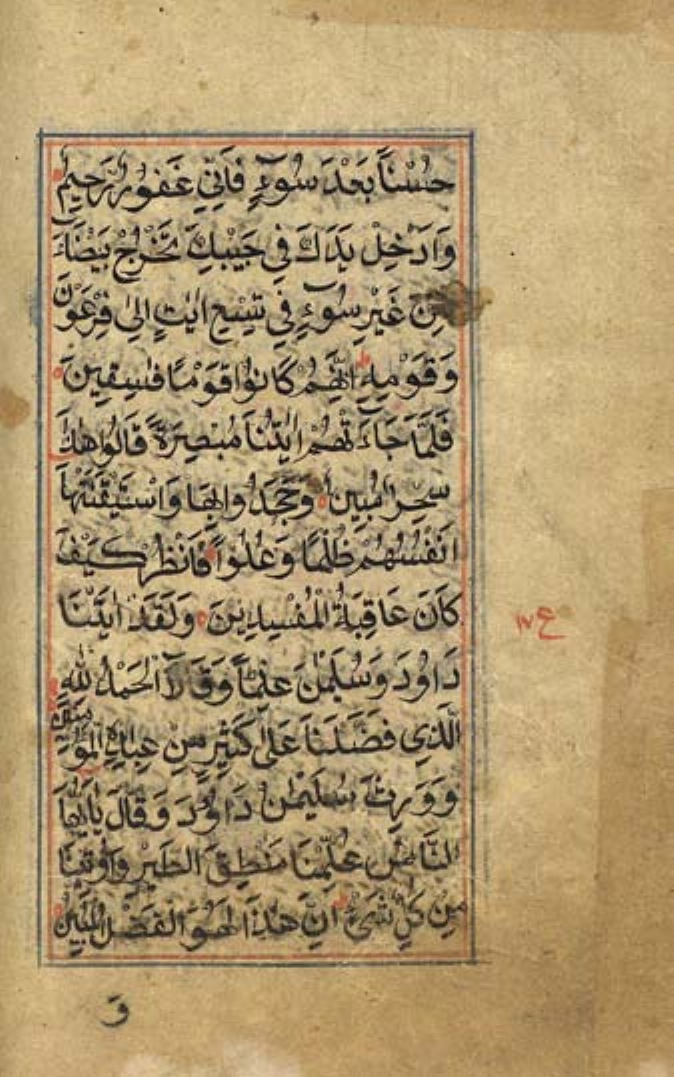 حُسْنًا بَعْدَ سُوٓءٍ فَاِنِّي غَفُورٌ رَحِيمٌ
وَاَدْخِلْ يَدَكَ فِي جَيْبِكَ تَخْرُجْ بَيْضَآءَ
مِنْ غَيْرِ سُوٓءٍ فِي تِسْعِ اٰيٰتٍ اِلٰى فِرْعَوْنَ
وَقَوْمِهٖ ط اِنَّهُمْ كَانُوْا قَوْمًا فٰسِقِينَ
فَلَمَّا جَآءَتْهُمْ اٰيٰتُنَا مُبْصِرَةً قَالُوا هٰذَا
سِحْرٌ مُبِينٌ وَجَحَدُوا بِهَا وَاسْتَيْقَنَتْهَا
اَنْفُسُهُمْ ظُلْمًا وَعُلُوًّا ط فَانْظُرْ كَيْفَ
كَانَ عَاقِبَةُ الْمُفْسِدِينَ وَلَقَدْ اٰتَيْنَا
ع
دَاوٗدَ وَسُلَيْمٰنَ عِلْمًا وَقَالَا الْحَمْدُ لِلّٰهِ
الَّذِي فَضَّلَنَا عَلٰى كَثِيرٍ مِنْ عِبَادِهِ الْمُؤْمِنِينَ
وَوَرِثَ سُلَيْمٰنُ دَاوٗدَ وَقَالَ يٰاَيُّهَا
النَّاسُ عُلِّمْنَا مَنْطِقَ الطَّيْرِ وَاُوتِينَا
مِنْ كُلِّ شَيْءٍ ط اِنَّ هٰذَا لَهُوَ الْفَضْلُ الْمُبِينُ
وَ